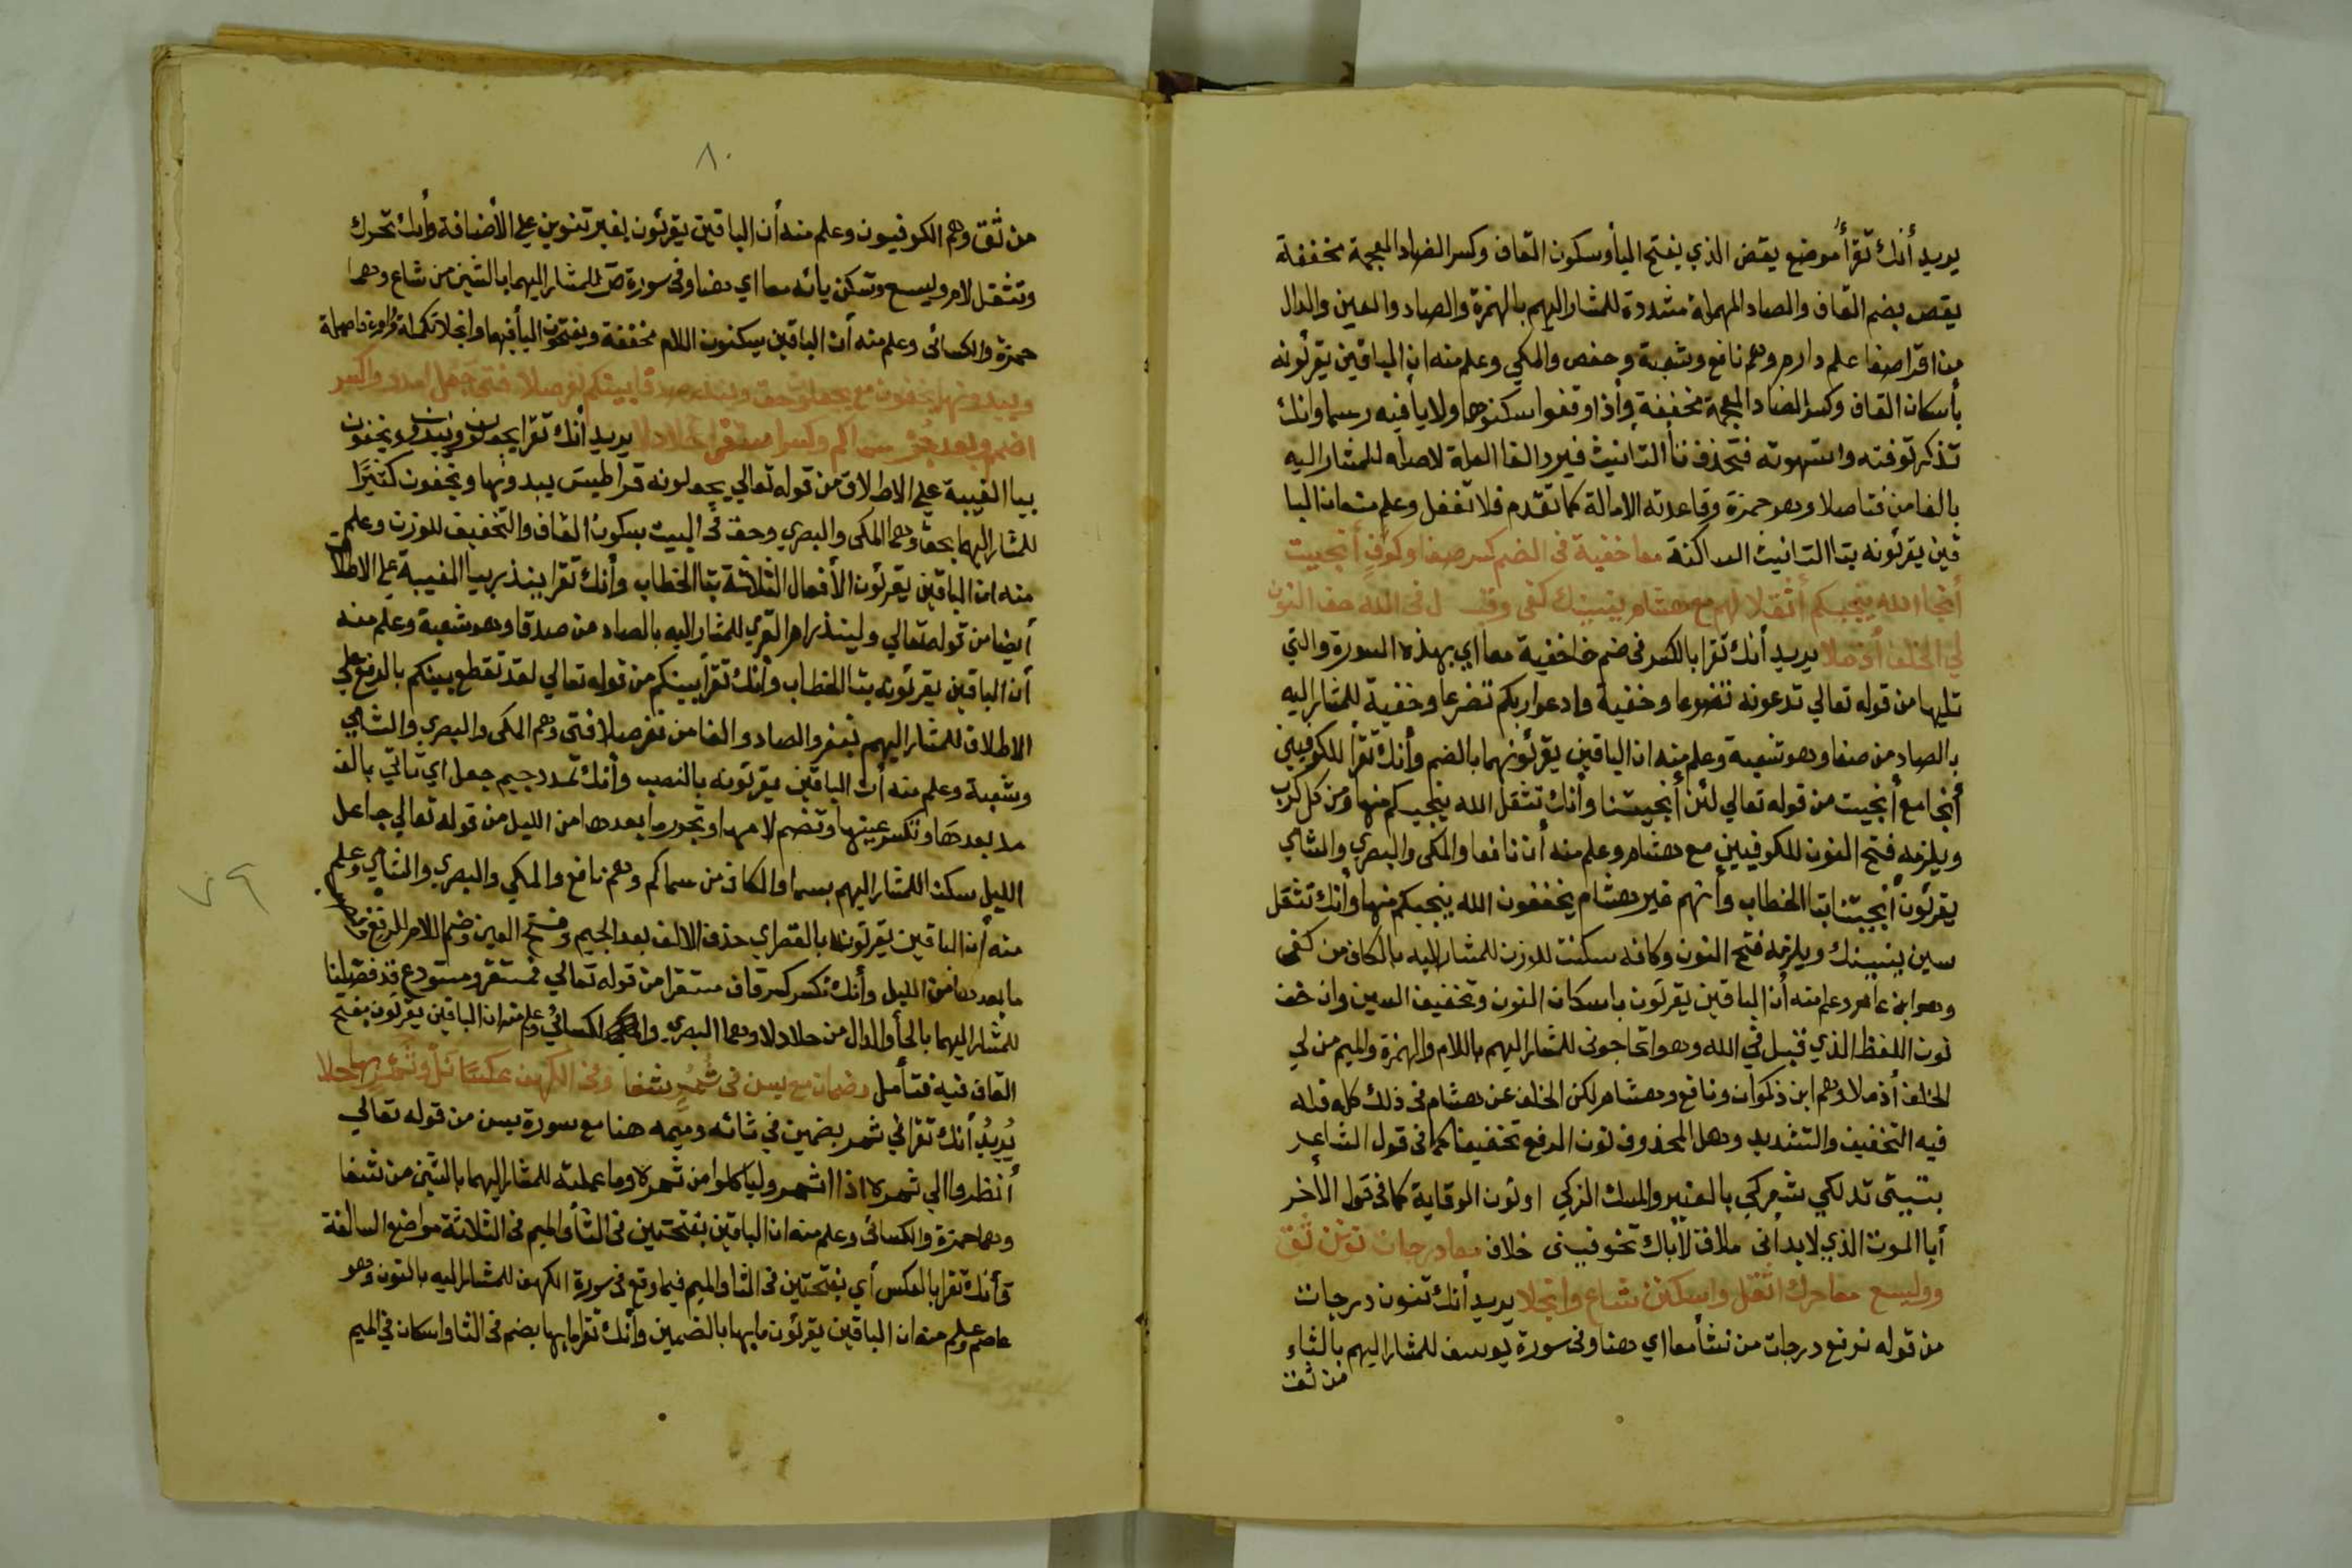 يريد أنك تقرأ موضع يقض الذي يفتح اليأ وسكون القاف وكسر الضاد المعجمة مخففة
يقص بضم القاف والصاد المهملة مشددة للمشار اليهم بالهمزة والصاد والعين والدال
من اقرا صفا علم دارم وهم نافع وشعبة وحفص والمكي وعلم منه ان الباقين يقرئونه
بأسكان القاف وكسر الضاد المعجمة مخففة وأذا وقفوا سكنوهما ولا يا فيه رسما وانك
تذكر توفته واستهوته فتحذف تأ التانيث فيرد الفا الملة لاصله للمشار اليه
بالفا من فتا صلا وهو حمزة وقاعدته الامالة كما تقدم فلا تغفل وعلم منه ان البا
قين يقرئونه بتا التانيث الساكنة معا خفية فى الضم كسر صفا وكوف أنجيت
أنجا الله ينجيكم أثقلا لهم مع هشام ينسينك كفى وقبل فى الله خف النون
لي الخلف أذ ملا يريد أنك تقرا بالكسر فى ضم خا خفية معا اي بهذه السورة والتي
تليها من قوله تعالي تدعونه تضرعا وخفية وادعوا ربكم تضرعا وخفية للمشار اليه
بالصاد من صفا وهو شعبة وعلم منه ان الباقين يقرئونهما بالضم وأنك تقرأ للكوفيين
أنجا مع أنجيت من قوله تعالي لئن أنجيتنا وأنك تثقل الله ينجيكم منها ومن كل كرب
ويلزمه فتح النون للكوفيين مع هشام وعلم منه أن نافعا والمكى والبصري والشامي
يقرئون أنجيتنا بتا الخطاب وأنهم غير هشام يخففون الله ينجيكم منها وأنك تثقل
سين ينسينك ويلزمه فتح النون وكافه سكنت للوزن للمشار اليه بالكاف من كفى
وهو ابن عامر وعلم منه أن الباقين يقرئون باسكان النون وتخفيف السين وان خف
نون اللفظ الذي قبل في الله وهو اتحاجوني للمشار اليهم باللام والهمزة والميم من لي
الخلف أذ ملا وهم ابن ذكوان ونافع وهشام لكن الخلف عن هشام فى ذلك كله فله
فيه التخفيف والتشديد وهل المحذوف نون الرفع تخفيفا كما فى قول الشاعر
تبيتى تدلكي شعركي بالعنبر والمسك الزكي او نون الوقاية كما فى قول الأخر
أبا الموت الذي لا بد أنى ملاق لأباك تخوفيني خلاف معا درجات نون ثق
وواليسع معا حرك اثقل واسكنن شاع وانجلا يريد أنك تنون درجات
من قوله نرفع درجات من نشأ معا اي هنا وفى سورة يوسف للمشار اليهم بالثاء
من ثق
٨٠
من ثق وهم الكوفيون وعلم منه أن الباقين يقرئون بغير تنوين علي الأضافة وأنك تحرك
وتثقل لام وليسع وتسكن يائه معا اي هنا وفى سورة ص للمشار اليهما بالشين من شاع وهما
حمزة والكسائى وعلم منه أن الباقين يسكنون اللام مخففة ويفتحون اليأ فيهما وانجلا تكملة
ويبدونها يخفون مع يجعلونه حق وينذر صدقا بينكم نفر صلا فتى جعل امدد واكسر
اضمم وبعد جر سما كم وكسرا مستقر حلا دلا يريد أنك تقرا يجعلون ويبدون ويخفون
بيا الغيبة علي الاطلاق من قوله تعالي يجعلونه قراطيس يبدونها ويخفون كثيرًا
للمشار اليهما بحق وهما المكى والبصري وحق فى البيت بسكون القاف والتخفيف للوزن وعلم
منه ان الباقين يقرئون الأفعال الثلاثة بتا الخطاب وأنك تقرا ينذر بيا الغيبة علي الاطلاق
أيضا من قوله تعالي ولينذر ام القري للمشار اليه بالصاد من صدقا وهو شعبة وعلم منه
أن الباقين يقرئونه بتا الخطاب وأنك تقرأ بينكم من قوله تعالي لقد تقطع بينكم بالرفع علي
الاطلاق للمشار اليهم بنفر والصاد والفا من نفر صلا فتى وهم المكى والبصري والشامي
وشعبة وعلم منه أن الباقين يقرئونه بالنصب وأنك تمدد جيم جعل اي تاتي بالف
مد بعدها وتكسر عينها وتضم لامها وتجر ما بعدها من الليل من قوله تعالي جاعل
الليل سكنا للمشار اليهم بسما والكاف من سما كم وهم نافع والمكي والبصري والشامي وعلم
منه أن الباقين يقرئونه بالقصر اي حذف الالف بعد الجيم وفتح العين
ما بعدها من الليل وأنك تكسر كسر قاف مستقر من قوله تعالي فمستقر ومستودع قد فصلنا
للمشار اليهما بالحأ والدال من حلا دلا وهما البصري والمكى وعلم منه ان الباقين يقرئون بفتح
القاف فيه فتأمل وضمان مع يس فى ثمر شفا وفى الكهف عكسا نل وثمر بها حلا
يُريدُ أنك تقرا في ثمر بضمين في ثائه وميمه هنا مع سورة يس من قوله تعالي
أنظروا الي ثمره اذا اثمر ولياكلوا من ثمره وما عملته للمشار اليهما بالشين من شفا
وهما حمزة والكسائى وعلم منه ان الباقين بفتحتين فى الثأ والميم فى الثلاثة مواضع السالفة
وأنك تقرا بالعكس أي بفتحتين فى الثا والميم فيما وقع فى سورة الكهف للمشار اليه بالنون وهو
عاصم وعلم منه ان الباقين يقرئون ما بها بالضمين وأنك تقرا ما بها بضم فى الثا واسكان في الميم
٧٩